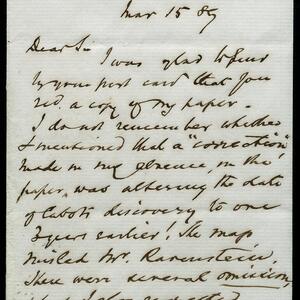 Mar 15 89
Dear Sir
I was glad to find
by your post card that you
recd. a copy of my paper.
I do not remember whether
I mentioned that a "correction"
made in my absence, in the
paper, was altering the date
of Cabot's discovery to one
3 years earlier! The map
misled Mr. Ravenstein.
There were several omissions,